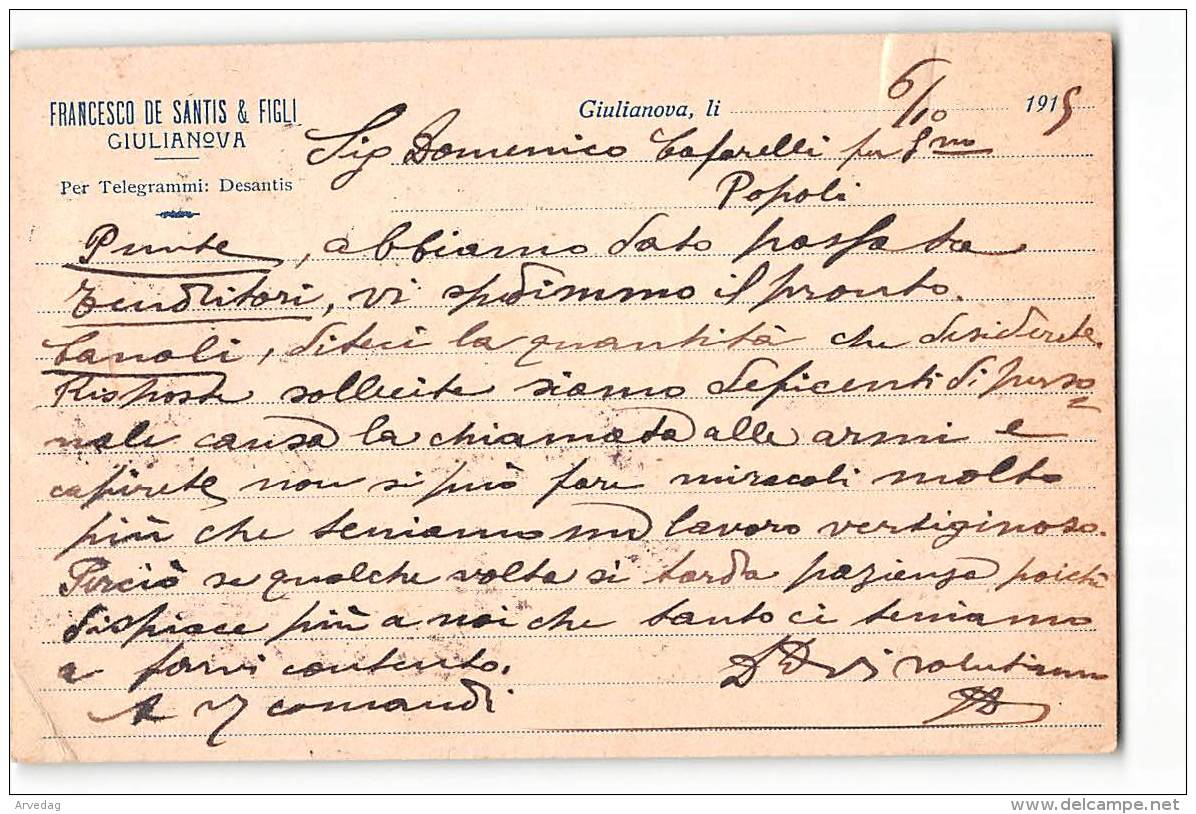 FRANCESCO DE SANTIS & FIGLI
GIULIANOVA
Per Telegrammi: Desantis
Giulianova, li 6/10 1915
Sig Domenico Cafarelli per
Popoli
Punte, abbiamo dato passata
Tenditori, vi spedimmo il pronto.
Canali, diteci la quantità che desiderate.
Risposte sollecite siamo deficenti di perso=
nale causa la chiamata alle armi e
capirete non si può fare miracoli molto
più che teniamo un lavoro vertiginoso.
Perciò se qualche volta si tarda pazienza poichè
dispiace più a noi che tanto ci teniamo
a farvi contento.
vi salutiamo
A comandi
Arvedag
delcampe.net